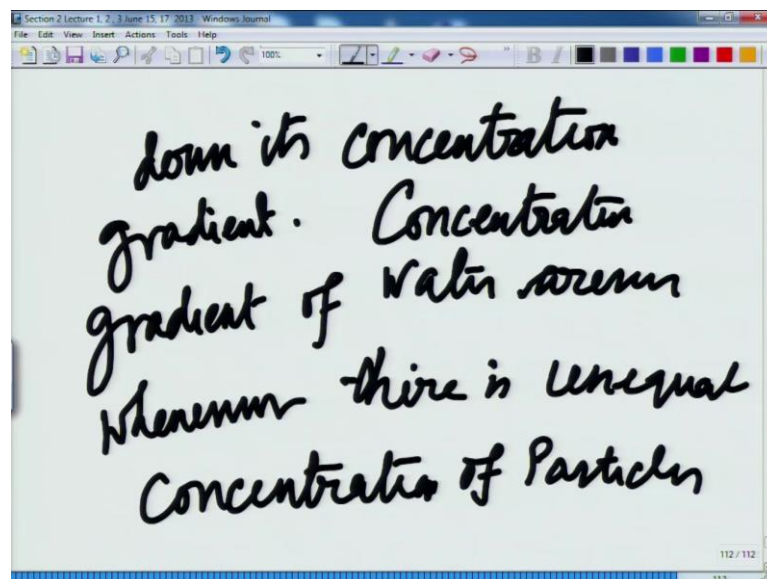 Section 2 Lecture 1, 2 , 3 June 15, 17 2013 - Windows Journal
File Edit View Insert Actions Tools Help
100% B I
down its concentration
gradient. Concentration
gradient of water
whenever there is unequal
Concentration of Particles
112 / 112